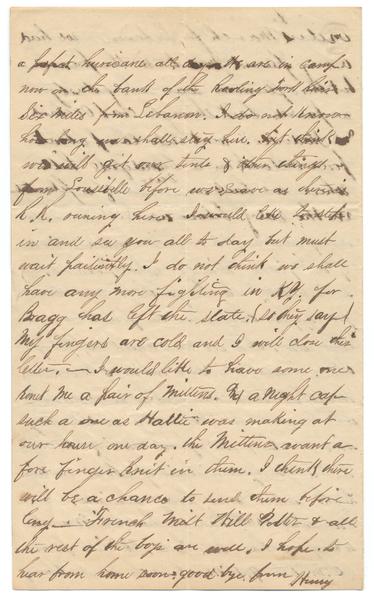 a perfect hurricane all day We are in camp
now on the bank of the Rowling Fork River
Six miles from Lebanon. I do not know
how long we shall stay here. I think
we will get our tents & other things
from Louisville before we leave as there is
R.R. runing here. I would like to step
in and see you all to day but must
wait patiently. I do not think we shall
have any more fighting in KY. for
Bragg has left the state. (so they say)
My fingers are cold and I will close this
letter. — I would like to have some one
knit me a pair of Mittens. & a night cap
such a one as Hattie was making at
our house one day. the Mittens want a
fore finger knit in them. I think there
will be a chance to send them before
long — French Milt Hill & all
the rest of the boys are well. I hope to
hear from home soon. good bye from Henry